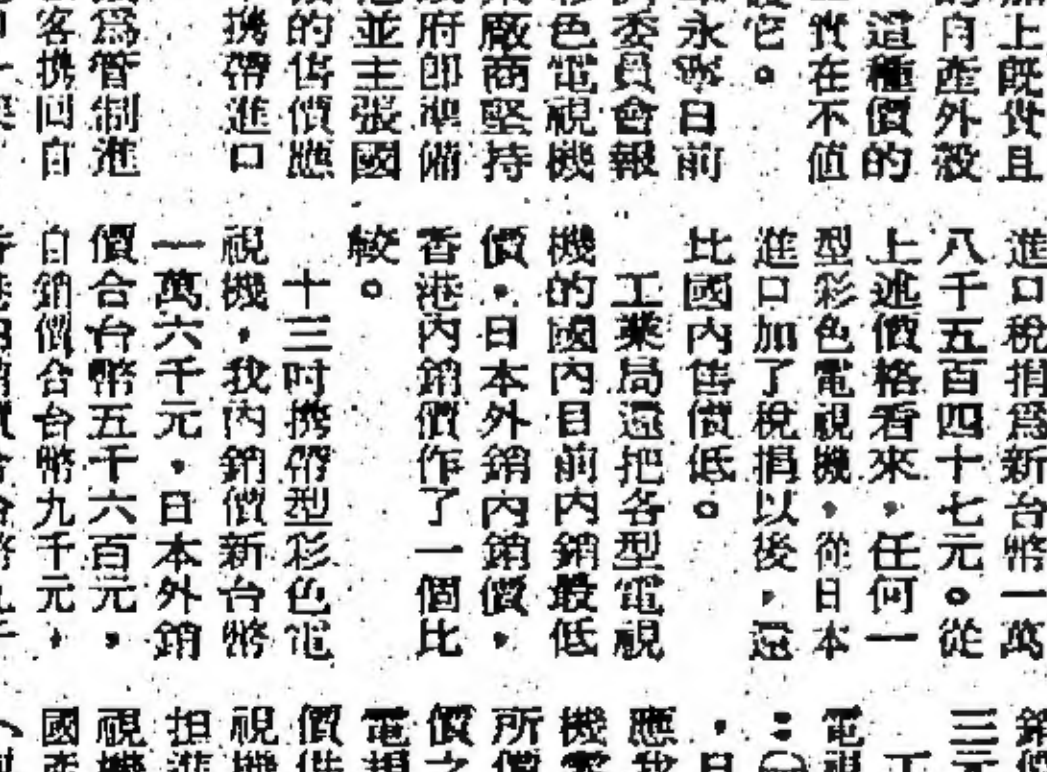 上既貴且
自產外殼
這種價的
實在不值
它。
永寧日前
委員會報
色電視機
廠商堅持
府即準備
並主張國
的售價應
携帶進口
爲管制進
客携回自
進口稅捐爲新台幣一萬
八千五百四十七元。從
上述價格看來，任何一
型彩色電視機，從日本
進口加了稅捐以後，還
比國內售價低。
工業局還把各型電視
機的國內目前內銷最低
價，日本外銷內銷價，
香港內銷價作了一個比
較。
十三吋携帶型彩色電
視機，我內銷價新台幣
一萬六千元，日本外銷
價合台幣五千六百元，
自銷價合台幣九千元，
銷
三
電
應
機
所
價
電
價
視
担
視
國